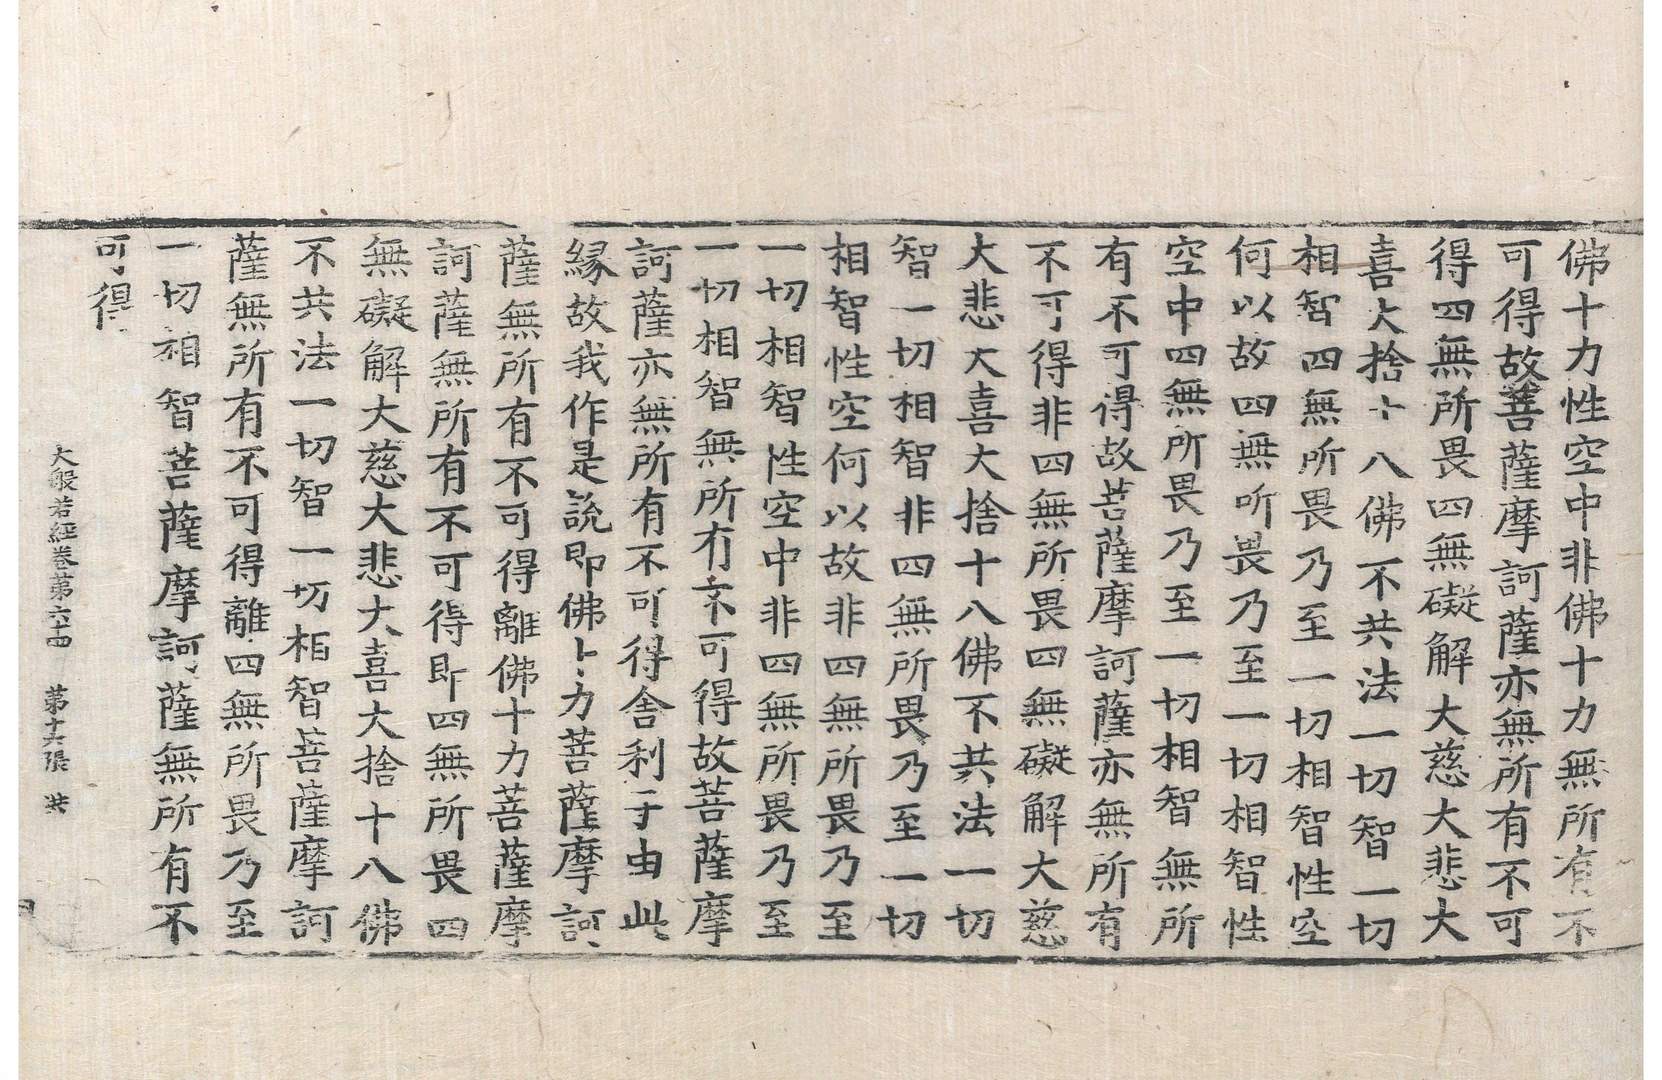 佛十力性空中非佛十力無所有不
可得故菩薩摩訶薩亦無所有不可
得四無所畏四無礙解大慈大悲大
喜大捨十八佛不共法一切智一切
相智四無所畏乃至一切相智性空
何以故四無所畏乃至一切相智性
空中四無所畏乃至一切相智無所
有不可得故菩薩摩訶薩亦無所有
不可得非四無所畏四無礙解大慈
大悲大喜大捨十八佛不共法一切
智一切相智非四無所畏乃至一切
相智性空何以故非四無所畏乃至
一切相智性空中非四無所畏乃至
一切相智無所有不可得故菩薩摩
訶薩亦無所有不可得舍利子由此
緣故我作是說即佛十力菩薩摩訶
薩無所有不可得離佛十力菩薩摩
訶薩無所有不可得即四無所畏四
無礙解大慈大悲大喜大捨十八佛
不共法一切智一切相智菩薩摩訶
薩無所有不可得離四無所畏乃至
一切相智菩薩摩訶薩無所有不
可得
大般若經卷第六十四 第十六張 芥